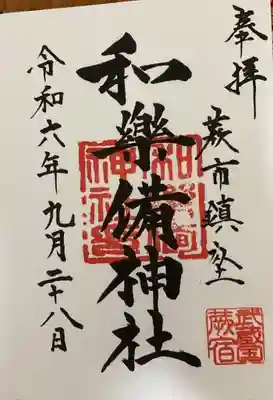 奉拝
蕨市鎮座
和樂備神社
令和六年九月二十八日
武蔵國
蕨宿